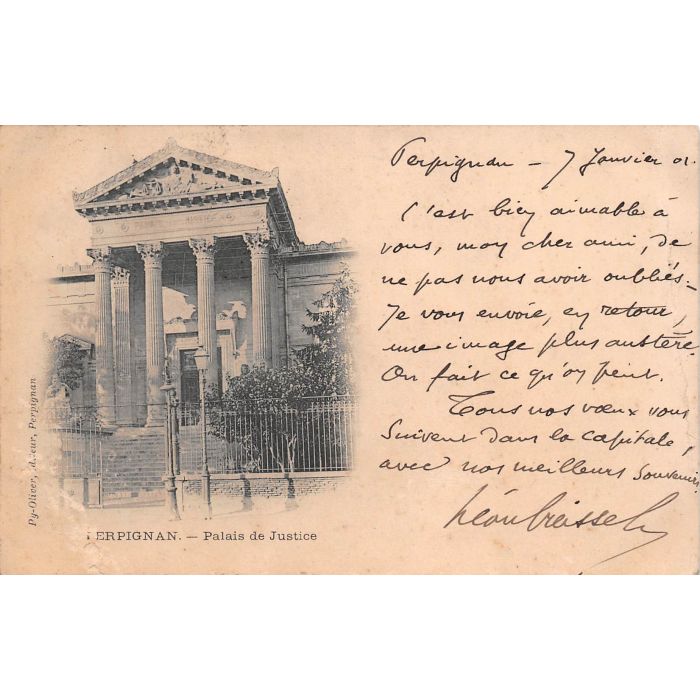 Perpignan – 7 Janvier 01.
C'est bien aimable à
vous, mon cher ami, de
ne pas nous avoir oubliés –
Je vous envoie, en retour,
une image plus austère
On fait ce qu'on peut.
Tous nos vœux vous
suivent dans la capitale,
avec nos meilleurs souvenirs
Léon
Py-Oliver, Perpignan
ERPIGNAN. — Palais de Justice